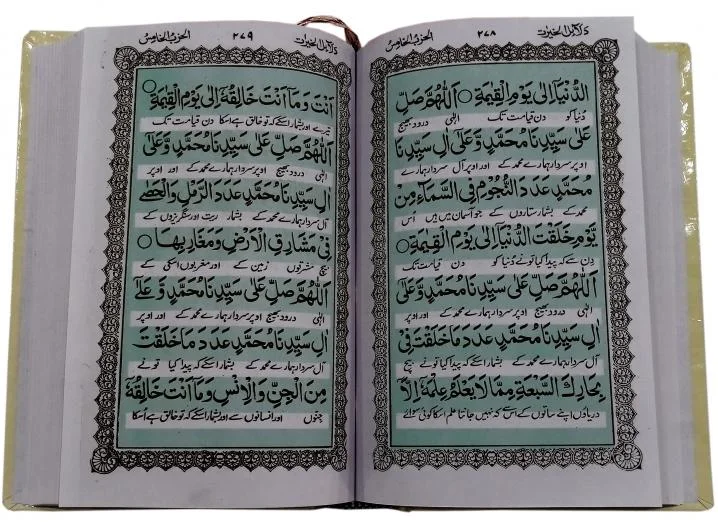 دلائل الخیرات ٢٧٨ الحزب الخامس
الدُّنْيَآ اِلٰى يَوْمِ الْقِيٰمَةِ ○ اَللّٰهُمَّ صَلِّ
دُنیا کو دن قیامت تک الٰہی درود بھیج
عَلٰى سَيِّدِنَا مُحَمَّدٍ وَّعَلٰٓى اٰلِ سَيِّدِنَا
اوپر سردار ہمارے محمد کے اور اوپر آل سردار ہمارے
مُحَمَّدٍ عَدَدَ النُّجُوْمِ فِى السَّمَآءِ مِنْ
محمد کے بشمار ستاروں کے جو آسمان میں ہیں اُس
يَّوْمٍ خَلَقْتَ الدُّنْيَا اِلٰى يَوْمِ الْقِيٰمَةِ ○
دن سے کہ پیدا کیا تو نے دُنیا کو دن قیامت تک
اَللّٰهُمَّ صَلِّ عَلٰى سَيِّدِنَا مُحَمَّدٍ وَّعَلٰٓى
الٰہی درود بھیج اوپر سردار ہمارے محمد کے اور اوپر
اٰلِ سَيِّدِنَا مُحَمَّدٍ عَدَدَ مَا خَلَقْتَ فِىْ
آل سردار ہمارے محمد کے بشمار اسکے کہ پیدا کیا تو نے بیچ
بِحَارِكَ السَّبْعَةِ مِمَّا لَا يَعْلَمُ عِلْمَهٗٓ اِلَّآ
دریاؤں اپنے ساتوں کے اس سے کہ نہیں جانتا علم اسکا کوئی سوائے
دلائل الخیرات ٢٧٩ الحزب الخامس
اَنْتَ وَمَآ اَنْتَ خَالِقُهٗٓ اِلٰى يَوْمِ الْقِيٰمَةِ ○
تیرے اور بشمار اسکے کہ تو خالق ہے اسکا دن قیامت تک
اَللّٰهُمَّ صَلِّ عَلٰى سَيِّدِنَا مُحَمَّدٍ وَّعَلٰٓى
الٰہی درود بھیج اوپر سردار ہمارے محمد کے اور اوپر
اٰلِ سَيِّدِنَا مُحَمَّدٍ عَدَدَ الرَّمْلِ وَالْحَصٰى
آل سردار ہمارے محمد کے بشمار ریت اور سنگریزوں کے
فِىْ مَشَارِقِ الْاَرْضِ وَمَغَارِبِهَا ○
بیچ مشرقوں زمین کے اور مغربوں اسکی کے
اَللّٰهُمَّ صَلِّ عَلٰى سَيِّدِنَا مُحَمَّدٍ وَّعَلٰٓى
الٰہی درود بھیج اوپر سردار ہمارے محمد کے اور اوپر
اٰلِ سَيِّدِنَا مُحَمَّدٍ عَدَدَ مَا خَلَقْتَ
آل سردار ہمارے محمد کے بشمار اسکے کہ پیدا کیا تو نے
مِنَ الْجِنِّ وَالْاِنْسِ وَمَآ اَنْتَ خَالِقُهٗٓ
جنوں اور انسانوں سے اور بشمار اسکے کہ تو خالق ہے اُسکا